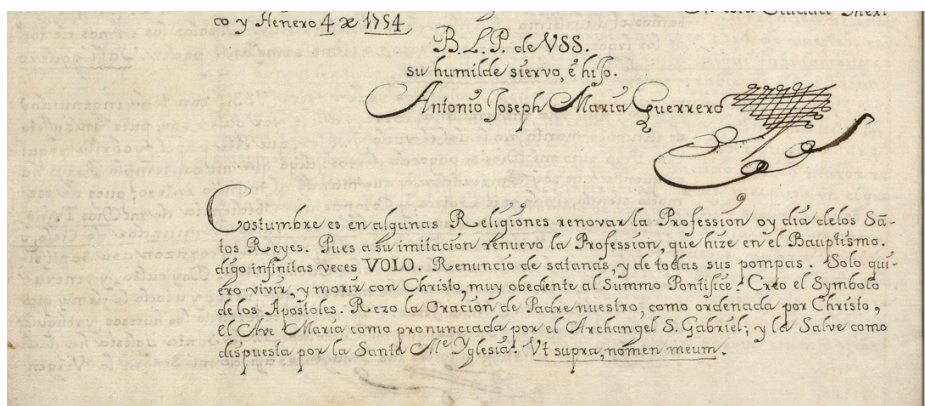 esta Ciudad Mexi-
co y Henero 4 de 1754
B. L. P. de VSS.
su humilde siervo, e hijo.
Antonio Joseph Maria Guerrero
Costumbre es en algunas Religiones renovar la Profession oy dia delos Sã-
tos Reyes. Pues a su imitacion renuevo la Profession, que hize en el Bauptismo.
digo infinitas veces VOLO. Renuncio de satanas, y de todas sus pompas. Solo qui-
ero vivir, y morir con Christo, muy obediente al Summo Pontifice. Creo el Symbolo
de los Apostoles. Rezo la Oracion de Padre nuestro, como ordenada por Christo,
el Ave Maria como pronunciada por el Archangel S. Gabriel; y la Salve como
dispuesta por la Santa Me Yglesia. Vt supra, nomen meum.